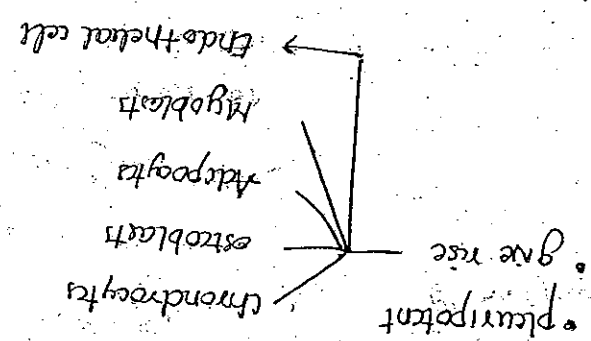 • pleuripotent
• give rise
Chrondrocytes
osteoblasts
Adipocytes
Myoblasts
Endothelial cell